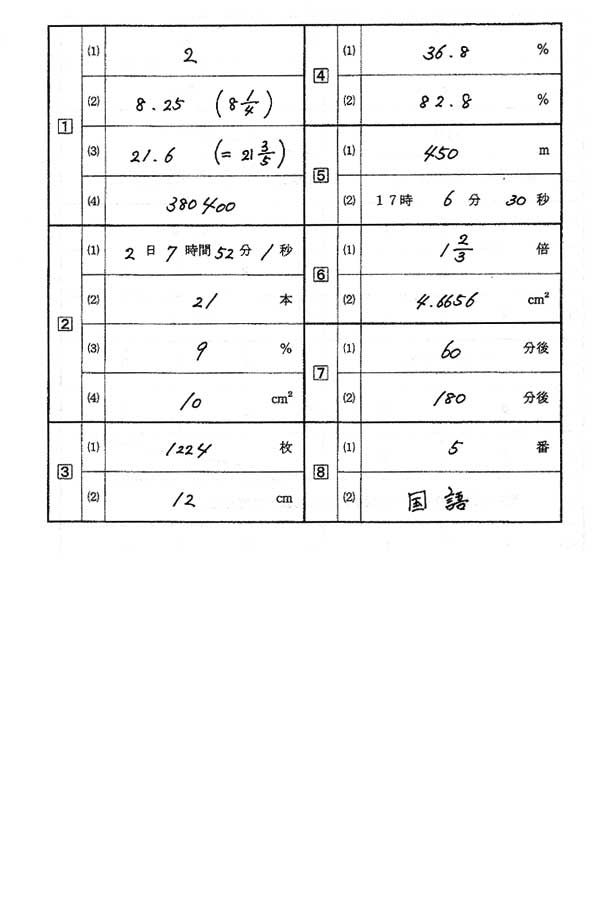 1
(1) 2
(2) 8.25 (8 1/4)
(3) 21.6 (= 21 3/5)
(4) 380400
2
(1) 2日7時間52分1秒
(2) 21 本
(3) 9 %
(4) 10 cm²
3
(1) 1224 枚
(2) 12 cm
4
(1) 36.8 %
(2) 82.8 %
5
(1) 450 m
(2) 17時 6分 30秒
6
(1) 1 2/3 倍
(2) 4.6656 cm²
7
(1) 60 分後
(2) 180 分後
8
(1) 5 番
(2) 国語